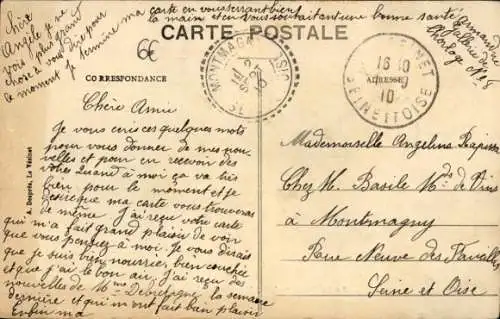 Chère
Angèle je ne
vous plus grand
chose à vous dire pour
le moment je termine ma carte en vous serrant bien
la main et en vous souhaitant une bonne santé
CARTE POSTALE
6e
CORRESPONDANCE
ADRESSE
MONTMAGNY
SEINE ET OISE
16 10
10
Chère Amie
Je vous ecris ces quelques mots
pour vous donner de mes nou-
velles et pour en recevoir des
votres Quand à moi ça va très
bien pour le moment et je
desire que ma carte vous trouveras
de même. J'ai reçu votre carte
qui m'a fait grand plaisir de voir
que vous pensiez à moi. Je vous dirais
que je suis bien nourrie, bien couchée
et que j'ai le bon air, j'ai reçu des
nouvelles de Mme la semaine
dernière et qui m'ont fait bien plaisir
Enfin ma
Mademoiselle Angelina
Chez M. Basile Md de Vins
à Montmagny
Rue Neuve des
Seine et Oise
A. Desprès, Le Vésinet